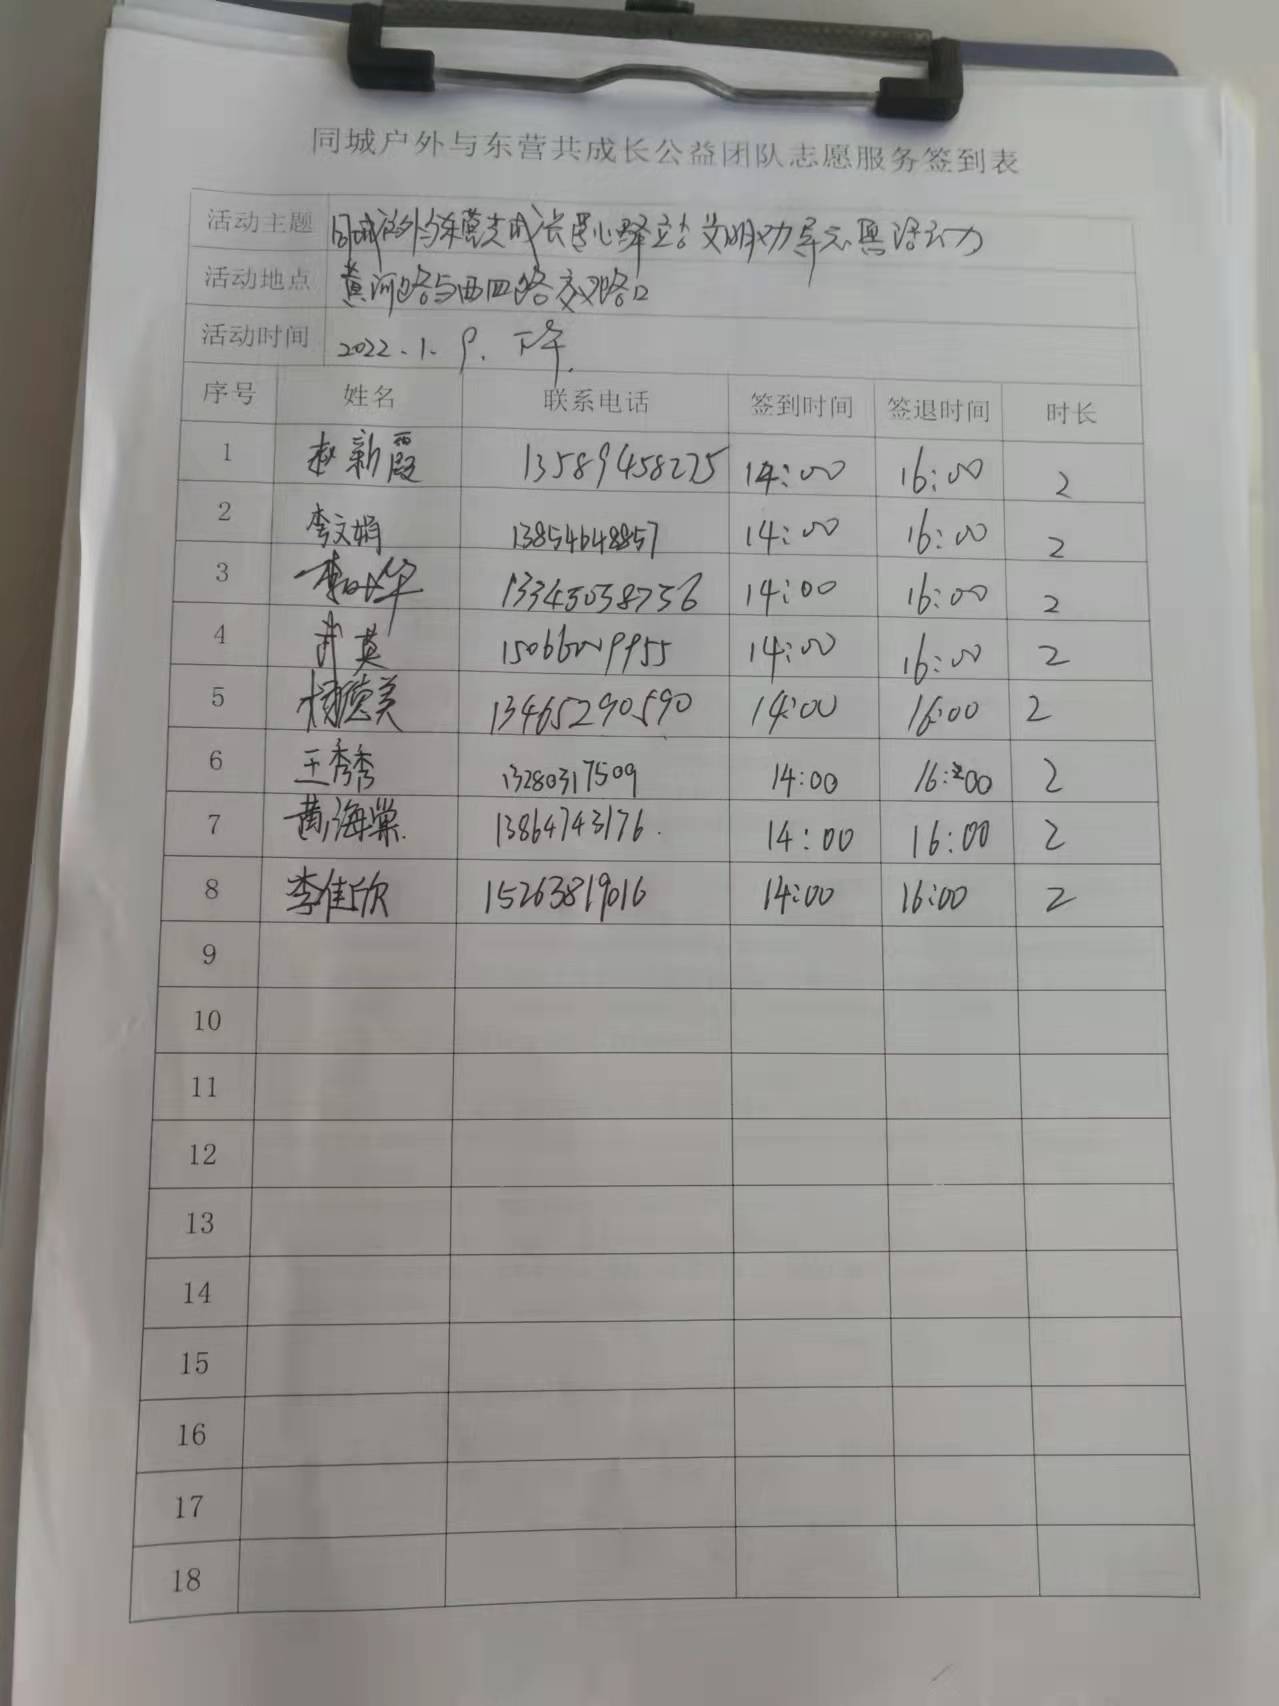 同城户外与东营共成长公益团队志愿服务签到表
活动主题 同城户外与东营共成长暖心驿站文明劝导志愿活动
活动地点 黄河路与西四路交叉路口
活动时间 2022.1.9.下午.
序号 姓名 联系电话 签到时间 签退时间 时长
1 赵新霞 13589458225 14:00 16:00 2
2 李文娟 13854648857 14:00 16:00 2
3 华 13345058756 14:00 16:00 2
4 武英 14:00 16:00 2
5 杨德美 13465290590 14:00 16:00 2
6 王秀秀 13280317509 14:00 16:00 2
7 黄海棠. 13864743176. 14:00 16:00 2
8 李佳欣 15263819016 14:00 16:00 2
9
10
11
12
13
14
15
16
17
18